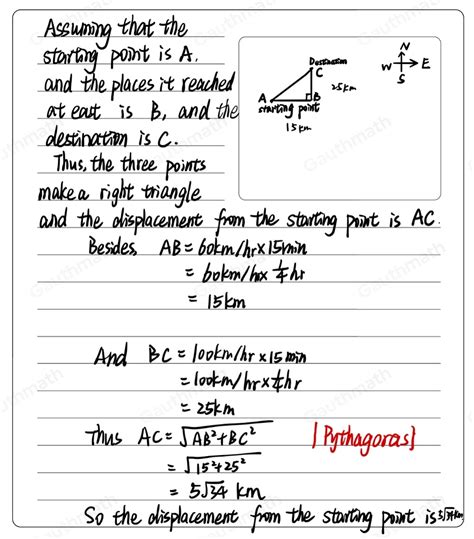 Assuming that the
starting point is A.
and the places it reached
at east is B, and the
destination is C.
Destination
C
A
B
25km
starting point
15km
N
W
E
S
Thus, the three points
make a right triangle
and the displacement from the starting point is AC.
Besides, AB = 60km/hr×15min
= 60km/hr× 1/4 hr
= 15km
And BC = 100km/hr×15min
= 100km/hr×1/4hr
= 25km
Thus AC = √AB²+BC² [Pythagoras]
= √15²+25²
= 5√34 km
So the displacement from the starting point is 5√34km
Gauthmath